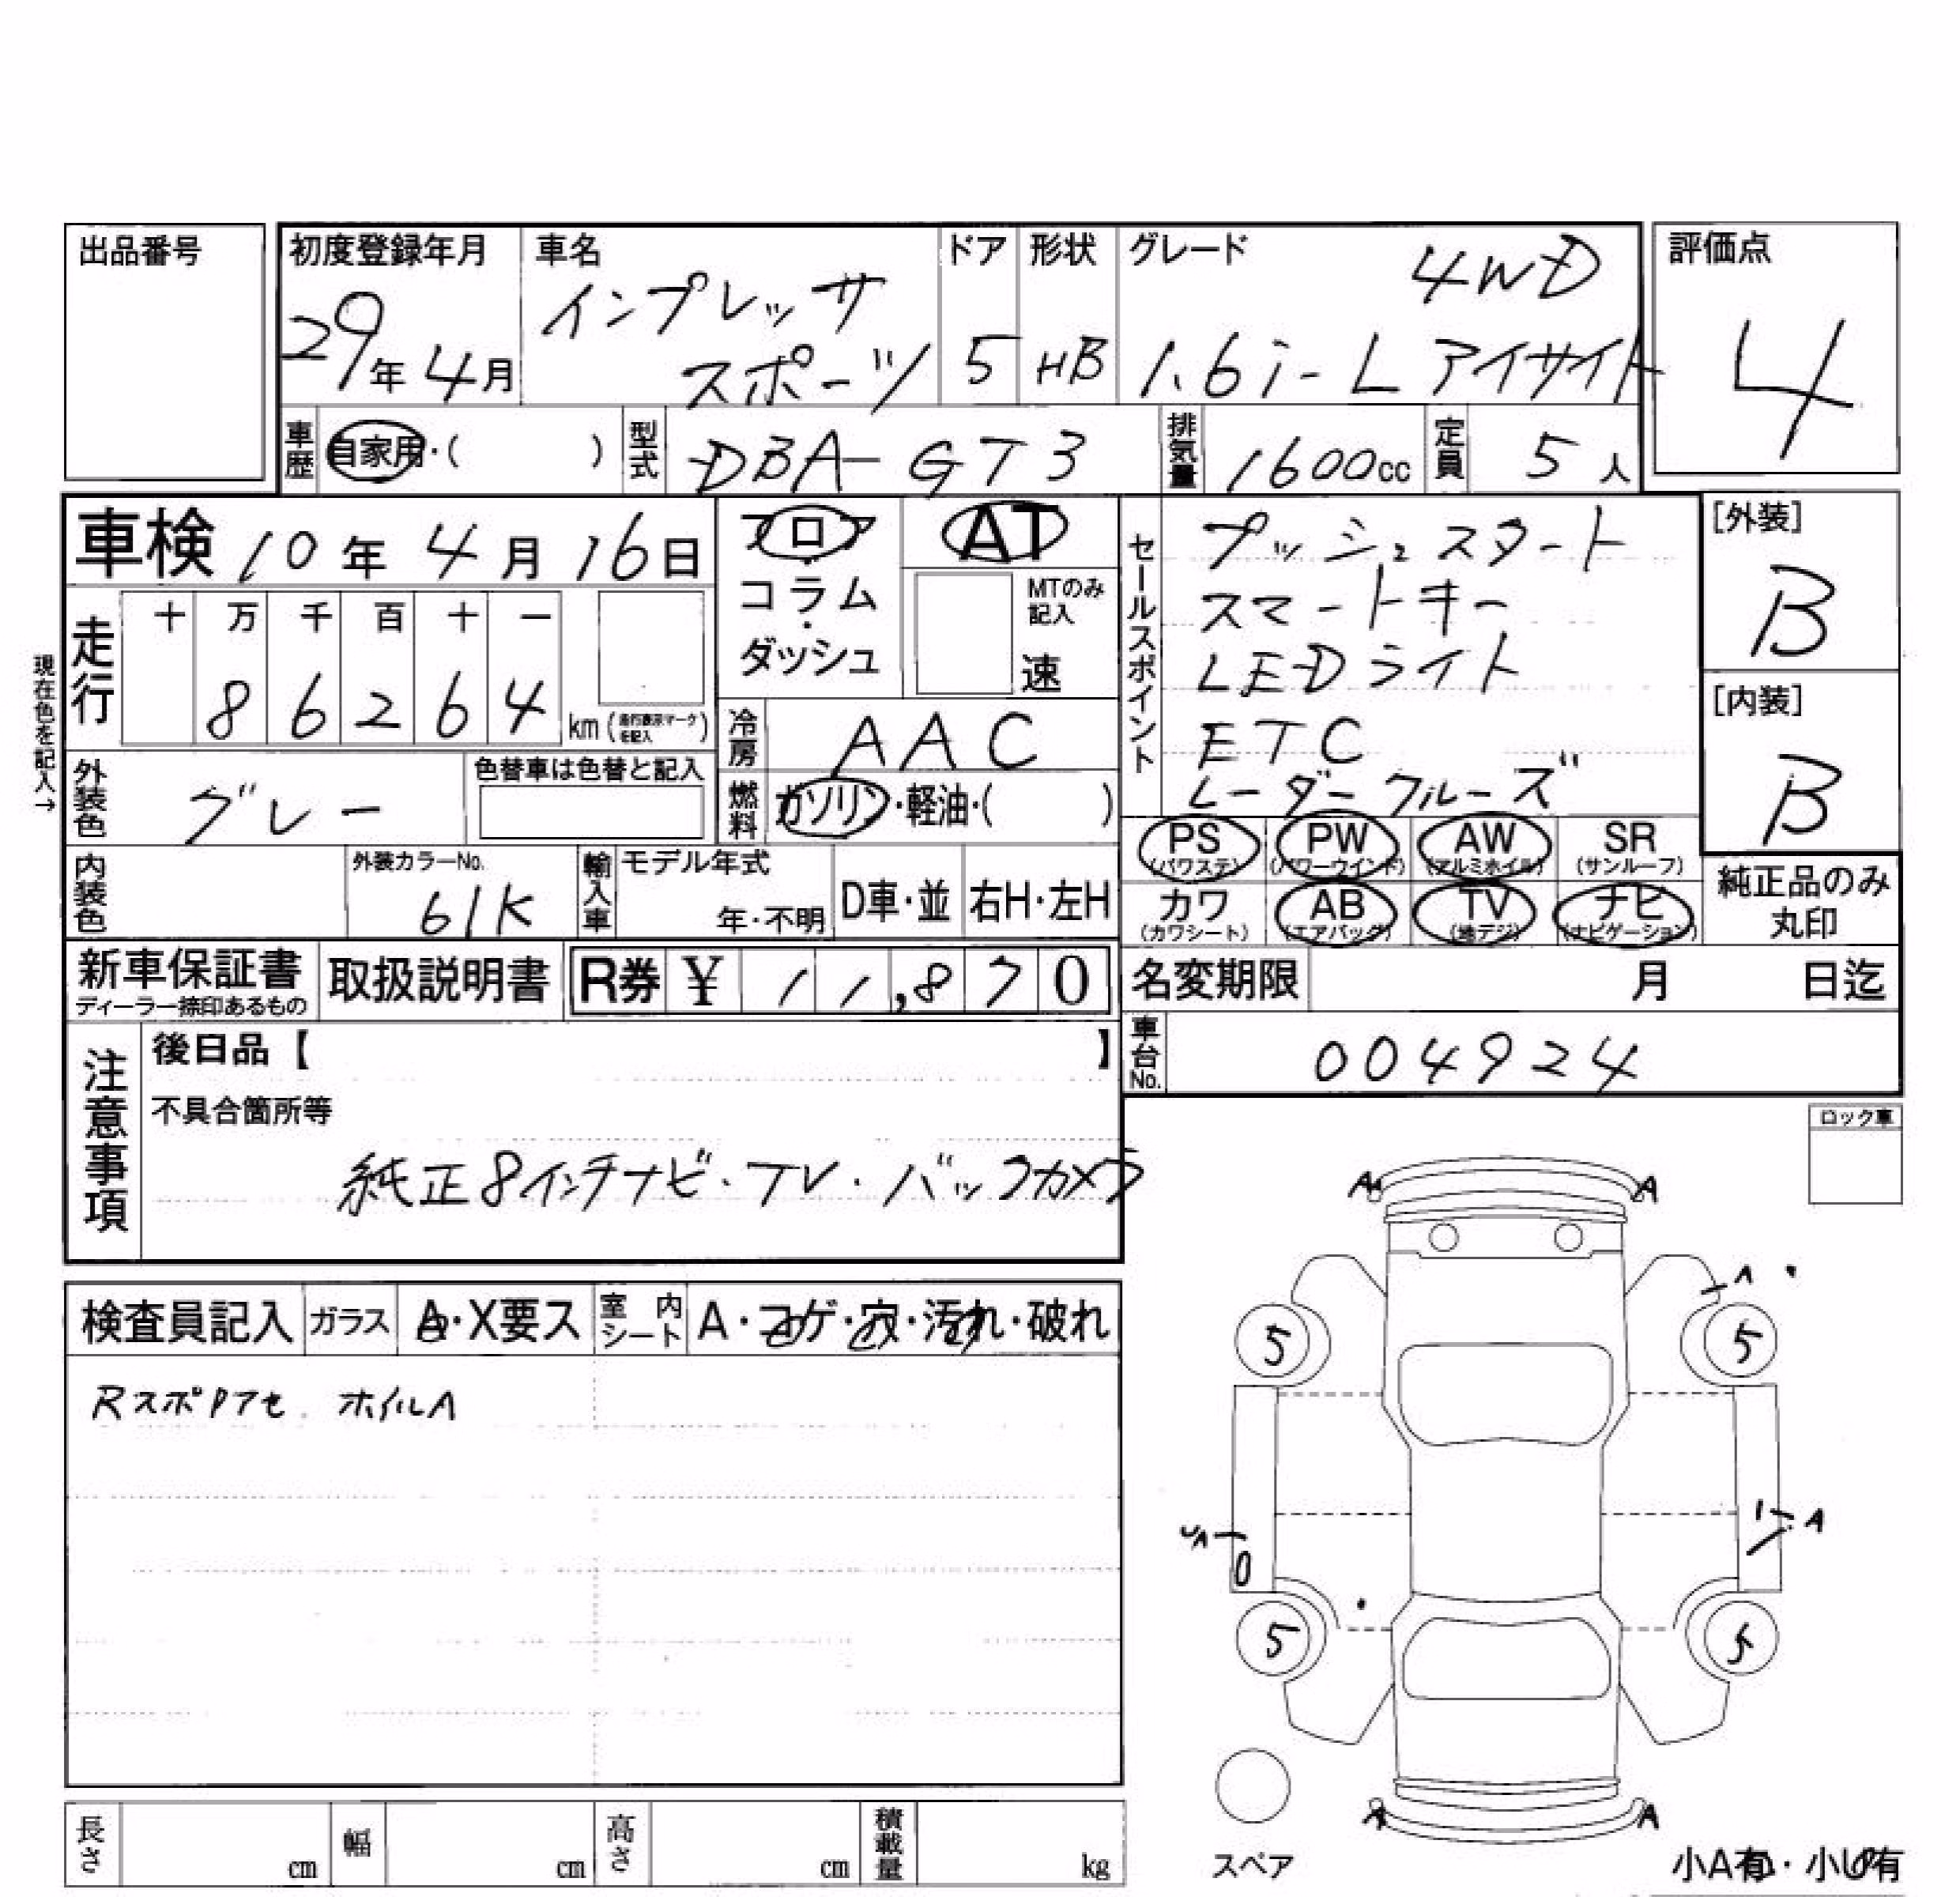 出品番号
初度登録年月 29年4月
車名 インプレッサ
スポーツ
ドア 5
形状 HB
グレード 4WD
1.6i-L アイサイト
評価点 4
車歴 自家用・( )
型式 DBA-GT3
排気量 1600cc
定員 5人
車検 10年4月16日
フロア
コラム
ダッシュ
AT
MTのみ
記入
速
セールスポイント
プッシュスタート
スマートキー
LEDライト
ETC
レーダークルーズ
[外装]
B
[内装]
B
現在色を記入→
走行 十 万 千 百 十 一
8 6 2 6 4 km (走行表示マークを記入)
冷房 AAC
外装色 グレー
色替車は色替と記入
燃料 ガソリン・軽油・( )
PS (パワステ) PW (パワーウインド) AW (アルミホイル) SR (サンルーフ)
カワ (カワシート) AB (エアバッグ) TV (地デジ) ナビ (ナビゲーション)
純正品のみ
丸印
内装色
外装カラーNo. 61K
輸入車 モデル年式
年・不明
D車・並 右H・左H
新車保証書
ディーラー捺印あるもの
取扱説明書
R券 ¥ 11,870
名変期限 月 日迄
車台No. 004924
注意事項
後日品【 】
不具合箇所等
純正8インチナビ・TV・バックカメラ
ロック車
検査員記入 ガラス A・X要ス 室内シート A・コゲ・穴・汚れ・破れ
Rスポ ホイルA
A A
A
5 5
A
5 5
A A
スペア
小A有・小U有
長さ cm 幅 cm 高さ cm 積載量 kg